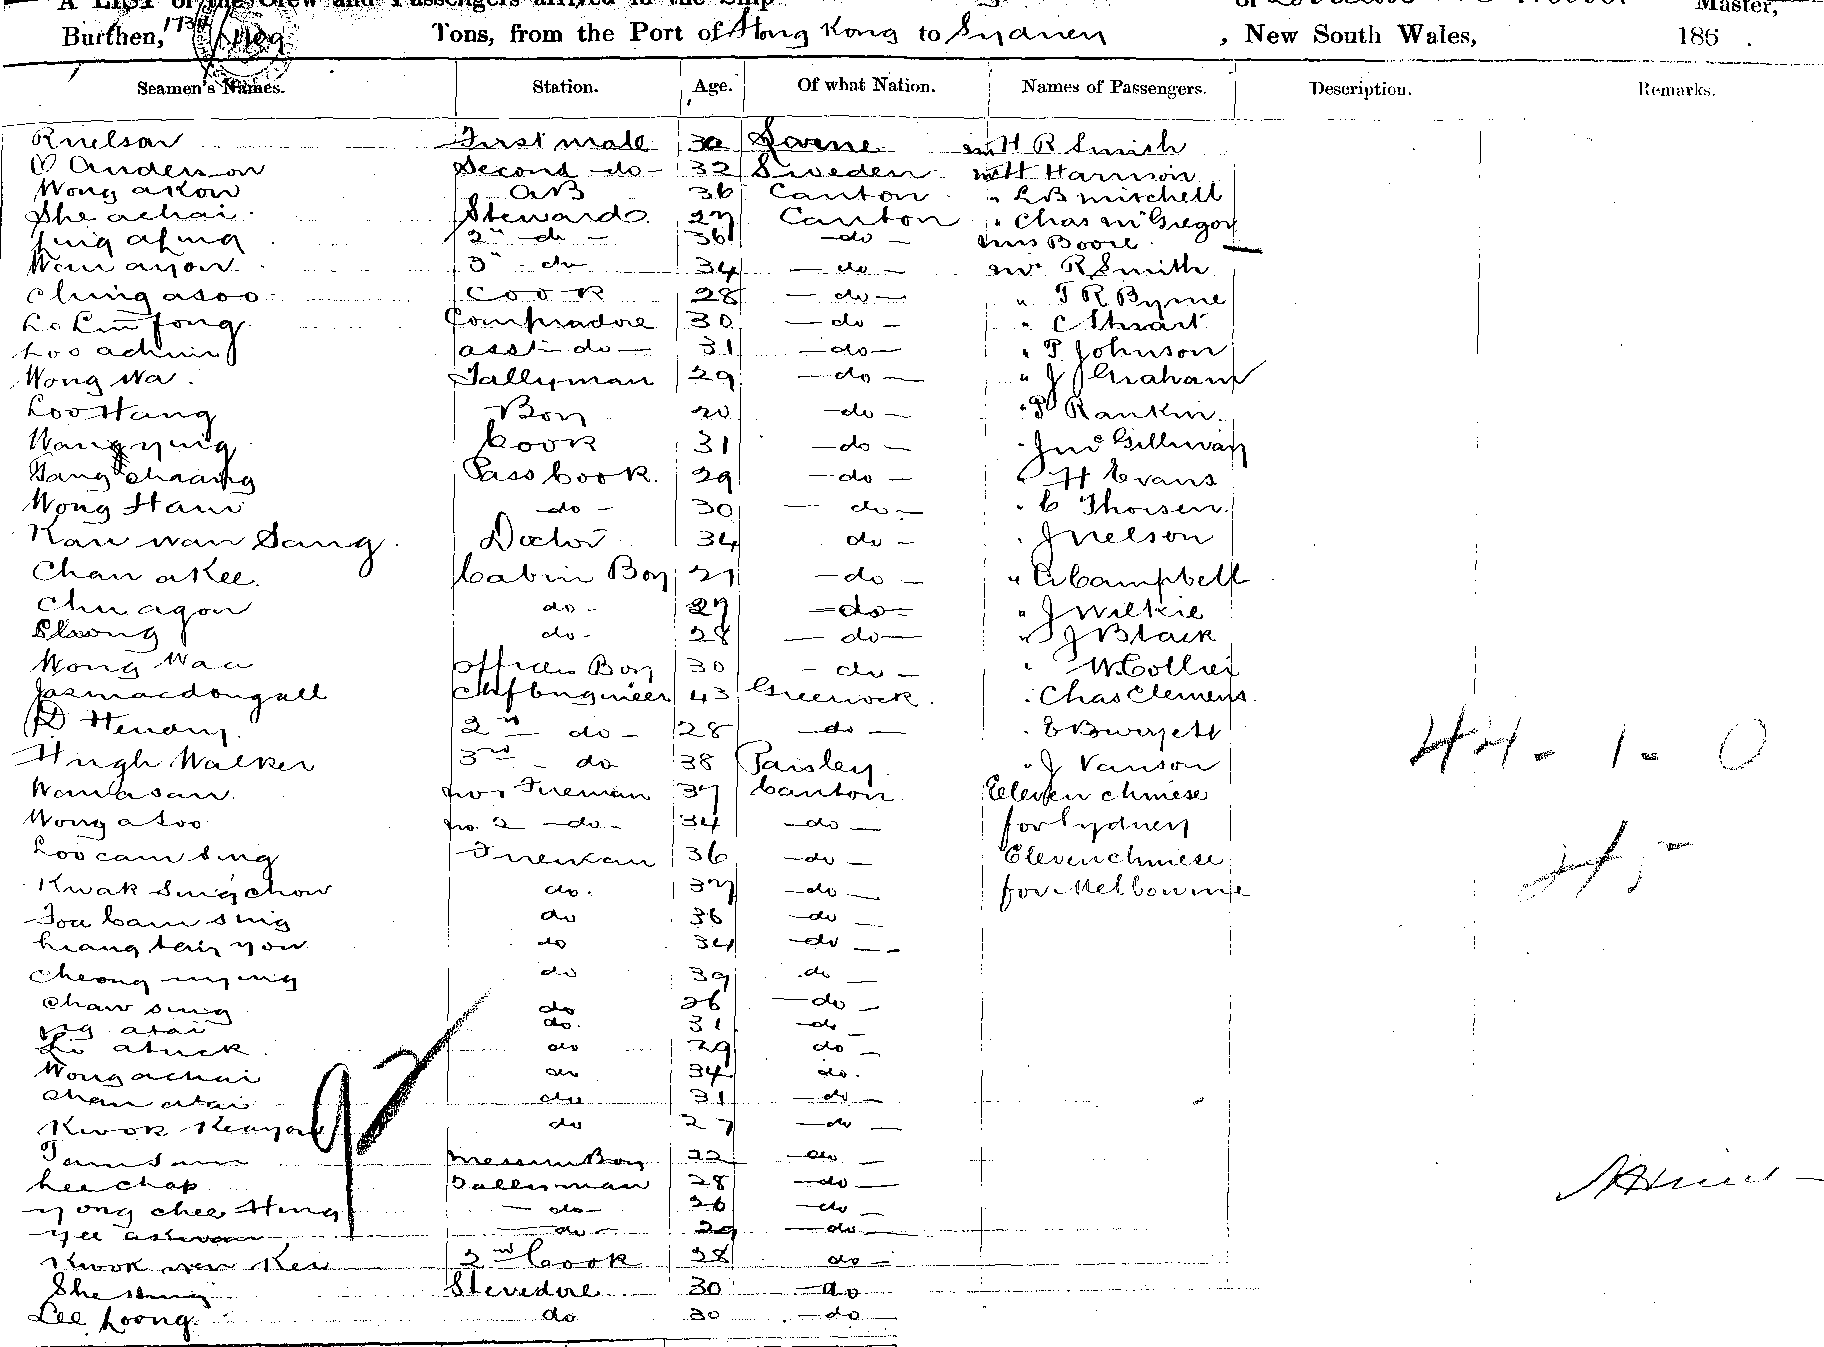 A LIST of the Crew and Passengers arrived in the Ship of Master,
Burthen, Tons, from the Port of Hong Kong to Sydney, New South Wales, 186 .
Seamen's Names. Station. Age. Of what Nation. Names of Passengers. Description. Remarks.
R Nelson First mate 32 mr H R Smith
O Anderson Second do 32 Sweden mr H Harrison
Wong akow AB 36 Canton " L B Mitchell
She achai Steward 27 Canton " Chas McGregor
2nd do 36 do
Wan ayon 3rd do 34 do mr R Smith
Ching asoo Cook 28 do " T R Byrne
Lo Lin fong Compradore 30 do " C Stuart
Loo achun asst do 31 do " P Johnson
Wong Wa Tallyman 29 do " J Graham
Loo Hang Boy 20 do " P Rankin
Wang ying Cook 31 do " Jno Gilliway
Tang chaang Pass Cook 29 do " H Evans
Wong Ham do 30 do " C Thorsen
Kan wan Sang Doctor 34 do " J Nelson
Chan akee Cabin Boy 21 do " A Campbell
Chu agon do 27 do " J Wilkie
do 28 do " J Black
Wong Wan Officers Boy 30 do " W Collier
Jas Macdougall Chf Engineer 43 Greenock " Chas Clemens
D Hendry 2nd do 28 do "
Hugh Walker 3rd do 38 Paisley " J Vanson
Wan asan No 1 Fireman 37 Canton Eleven chinese
Wong asoo No 2 do 34 do for Sydney
Loo cam sing Fireman 36 do Eleven chinese
Kwak Sing chow do 37 do for Melbourne
Tou cam sing do 36 do
do 34 do
Cheong do 39 do
Chaw sing do 26 do
Ng atai do 31 do
Li atuck do 29 do
Wong achai do 34 do
Chan atai do 31 do
Kwok do 27 do
Tam Sam Messroom Boy 22 do
Lee chap Tallyman 28 do
Yong chee Hing do 26 do
Yee do 29 do
Kwok wen Kee 2nd Cook 28 do
She Stevedore 30 do
Lee Loong do 30 do
44 - 1 - 0
92